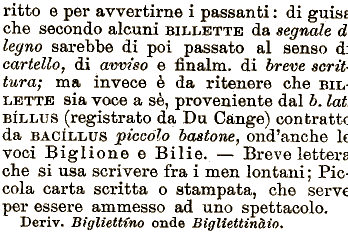 ritto e per avvertirne i passanti: di guisa
che secondo alcuni BILLETTE da segnale d
legno sarebbe di poi passato al senso d
cartello, di avviso e finalm. di breve scrit-
tura; ma invece è da ritenere che BIL-
LETTE sia voce a sè, proveniente dal b. lat.
BÍLLUS (registrato da Du Cange) contratto
da BACÍLLUS piccolo bastone, ond'anche le
voci Biglione e Bilie. — Breve lettera
che si usa scrivere fra i men lontani; Pic-
cola carta scritta o stampata, che serve
per essere ammesso ad uno spettacolo.
Deriv. Bigliettíno onde Bigliettinàio.